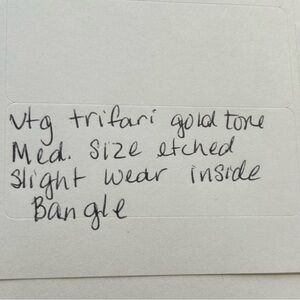 Vtg trifari gold tone
Med. Size etched
Slight wear inside
Bangle